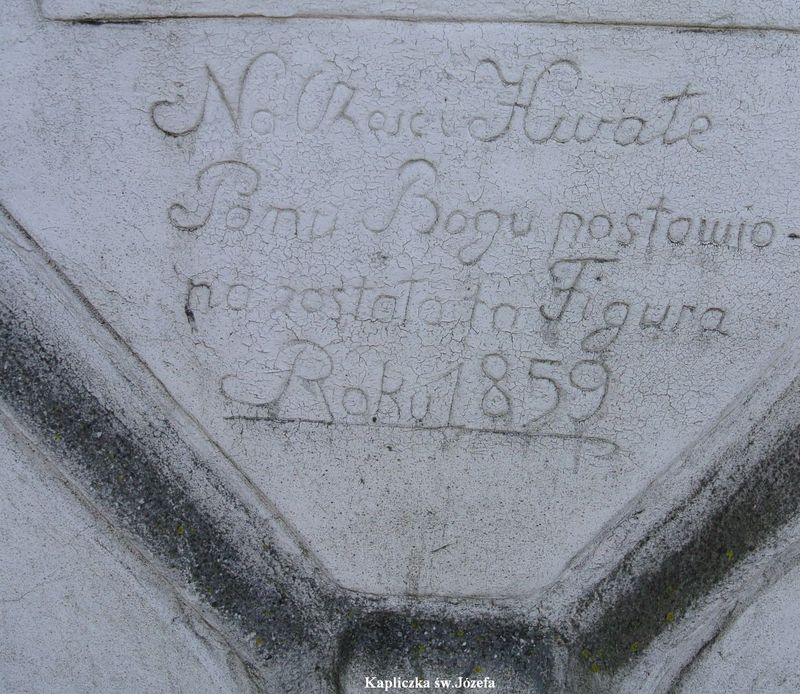 Na Cześci Hwałe
Panu Bogu postawio-
na została ta Figura
Roku 1859
Kapliczka św.Józefa